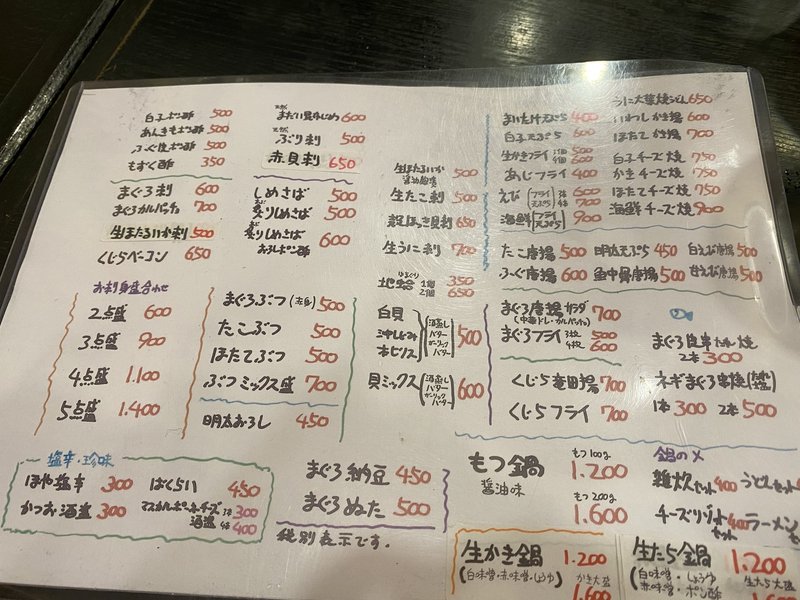 白子ポン酢 500
あんきもポン酢 500
ふぐ皮ポン酢 500
もずく酢 350
まぐろ刺 600
まぐろカルパッチョ 700
生ほたるいか刺 500
くじらベーコン 650
お刺身盛合わせ
2点盛 600
3点盛 900
4点盛 1.100
5点盛 1.400
600
ぶり刺 500
赤貝刺 650
しめさば 500
炙りしめさば 500
炙りしめさば
おろしポン酢 600
まぐろぶつ 500
たこぶつ 500
ほたてぶつ 500
ぶつミックス盛 700
明太おろし 450
生ほたるいか
500
生たこ刺 500
650
生うに刺 700
地蛤 1個 350
2個 650
白貝
沖しじみ
ホビノス
酒蒸し
バター
ガーリック
バター
500
貝ミックス
酒蒸し
バター
ガーリック
バター
600
まいたけ天ぷら 400
白子天ぷら 600
生かきフライ 500
4個 600
あじフライ 400
えび フライ
天ぷら
600
700
海鮮 フライ
天ぷら
900
うに大葉焼 650
いわしかき揚 600
ほたてかき揚 700
白子チーズ焼 750
かきチーズ焼 750
ほたてチーズ焼 750
海鮮チーズ焼 900
たこ唐揚 500 明太天ぷら 450 白えび唐揚 500
ふぐ唐揚 600 魚中骨唐揚 500 甘えび唐揚 500
まぐろ唐揚サラダ 700
まぐろフライ 3枚 500
4枚 600
くじら竜田揚 700
くじらフライ 700
2本 300
ネギまぐろ串焼
1本 300 2本 500
塩辛・珍味
ほや塩辛 300 ばくらい 450
かつお酒盗 300 マスカルポーネチーズ
酒盗
300
400
まぐろ納豆 450
まぐろぬた 500
税別表示です。
もつ鍋
醤油味
もつ100g
1.200
もつ200g
1.600
鍋の〆
雑炊セット 400 うどんセット
チーズリゾットセット 400 ラーメンセット
生かき鍋 1.200
(白味噌・赤味噌・しょうゆ)
かき大盛
1.600
生たら鍋 1.200
(白味噌・しょうゆ
赤味噌・ポン酢
生たら大盛